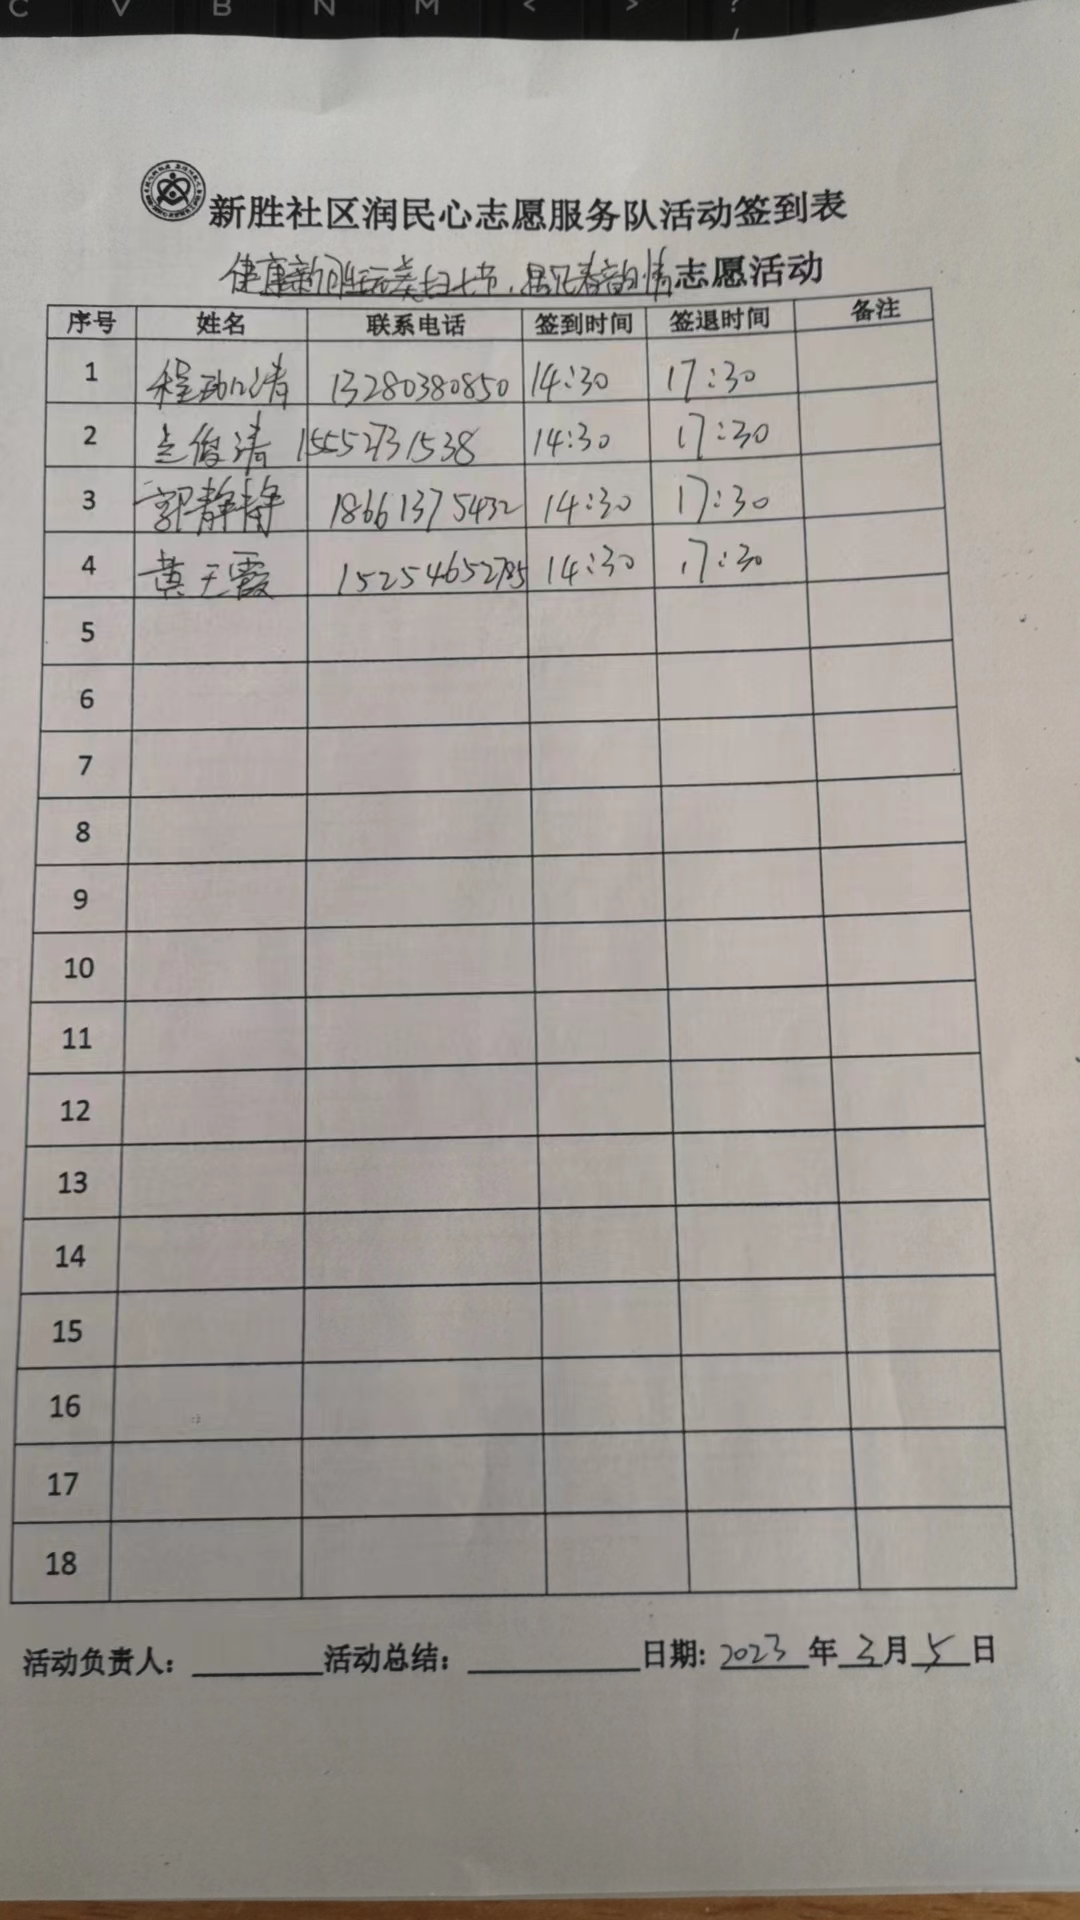 C V B N M < > ?
/
新胜社区润民心志愿服务队活动签到表
健康新 志愿活动
序号 姓名 联系电话 签到时间 签退时间 备注
1 程 清 13280380850 14:30 17:30
2 俊涛 15552731538 14:30 17:30
3 郭静静 18661375432 14:30 17:30
4 黄 霞 14:30 17:30
5
6
7
8
9
10
11
12
13
14
15
16
17
18
活动负责人: 活动总结: 日期: 2023 年 3 月 5 日